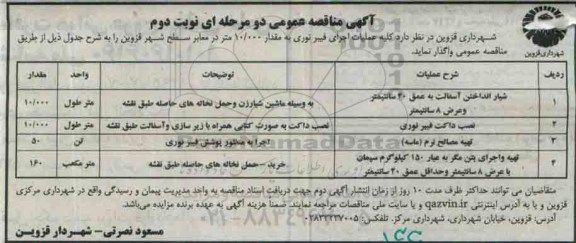 آگهی مناقصه عمومی دو مرحله ای نوبت دوم
شهرداری قزوین
شهرداری قزوین در نظر دارد کلیه عملیات اجرای فیبر نوری به مقدار ۱۰/۰۰۰ متر در معابر سطح شهر قزوین را به شرح جدول ذیل از طریق
مناقصه عمومی واگذار نماید.
ردیف شرح عملیات توضیحات واحد مقدار
۱ شیار انداختن آسفالت به عمق ۴۰ سانتیمتر وعرض ۸ سانتیمتر به وسیله ماشین شیارزن وحمل نخاله های حاصله طبق نقشه متر طول ۱۰/۰۰۰
۲ نصب داکت فیبر نوری نصب داکت به صورت کتابی همراه با زیر سازی وآسفالت طبق نقشه متر طول ۱۰/۰۰۰
۳ تهیه مصالح نرم (ماسه) اجرا به منظور پوشش فیبر نوری تن ۵۰
۴ تهیه واجرای بتن مگر به عیار ۱۵۰ کیلوگرم سیمان با عرض ۸ سانتیمتر وحداقل عمق ۲۰ سانتیمتر خرید - حمل نخاله های حاصله طبق نقشه متر مکعب ۱۶۰
متقاضیان می توانند حداکثر ظرف مدت ۱۰ روز از زمان انتشار آگهی دوم جهت دریافت اسناد مناقصه به واحد مدیریت پیمان و رسیدگی واقع در شهرداری مرکزی
قزوین و یا به آدرس اینترنتی qazvin.ir و یا سایت ملی مناقصات مراجعه نمایند. ضمنا هزینه آگهی به عهده برنده مزایده می‌باشد.
آدرس: قزوین، خیابان شهرداری، شهرداری مرکز. تلفکس: ۰۲۸۳۳۲۳۷۰۰۵
مسعود نصرتی - شهردار قزوین